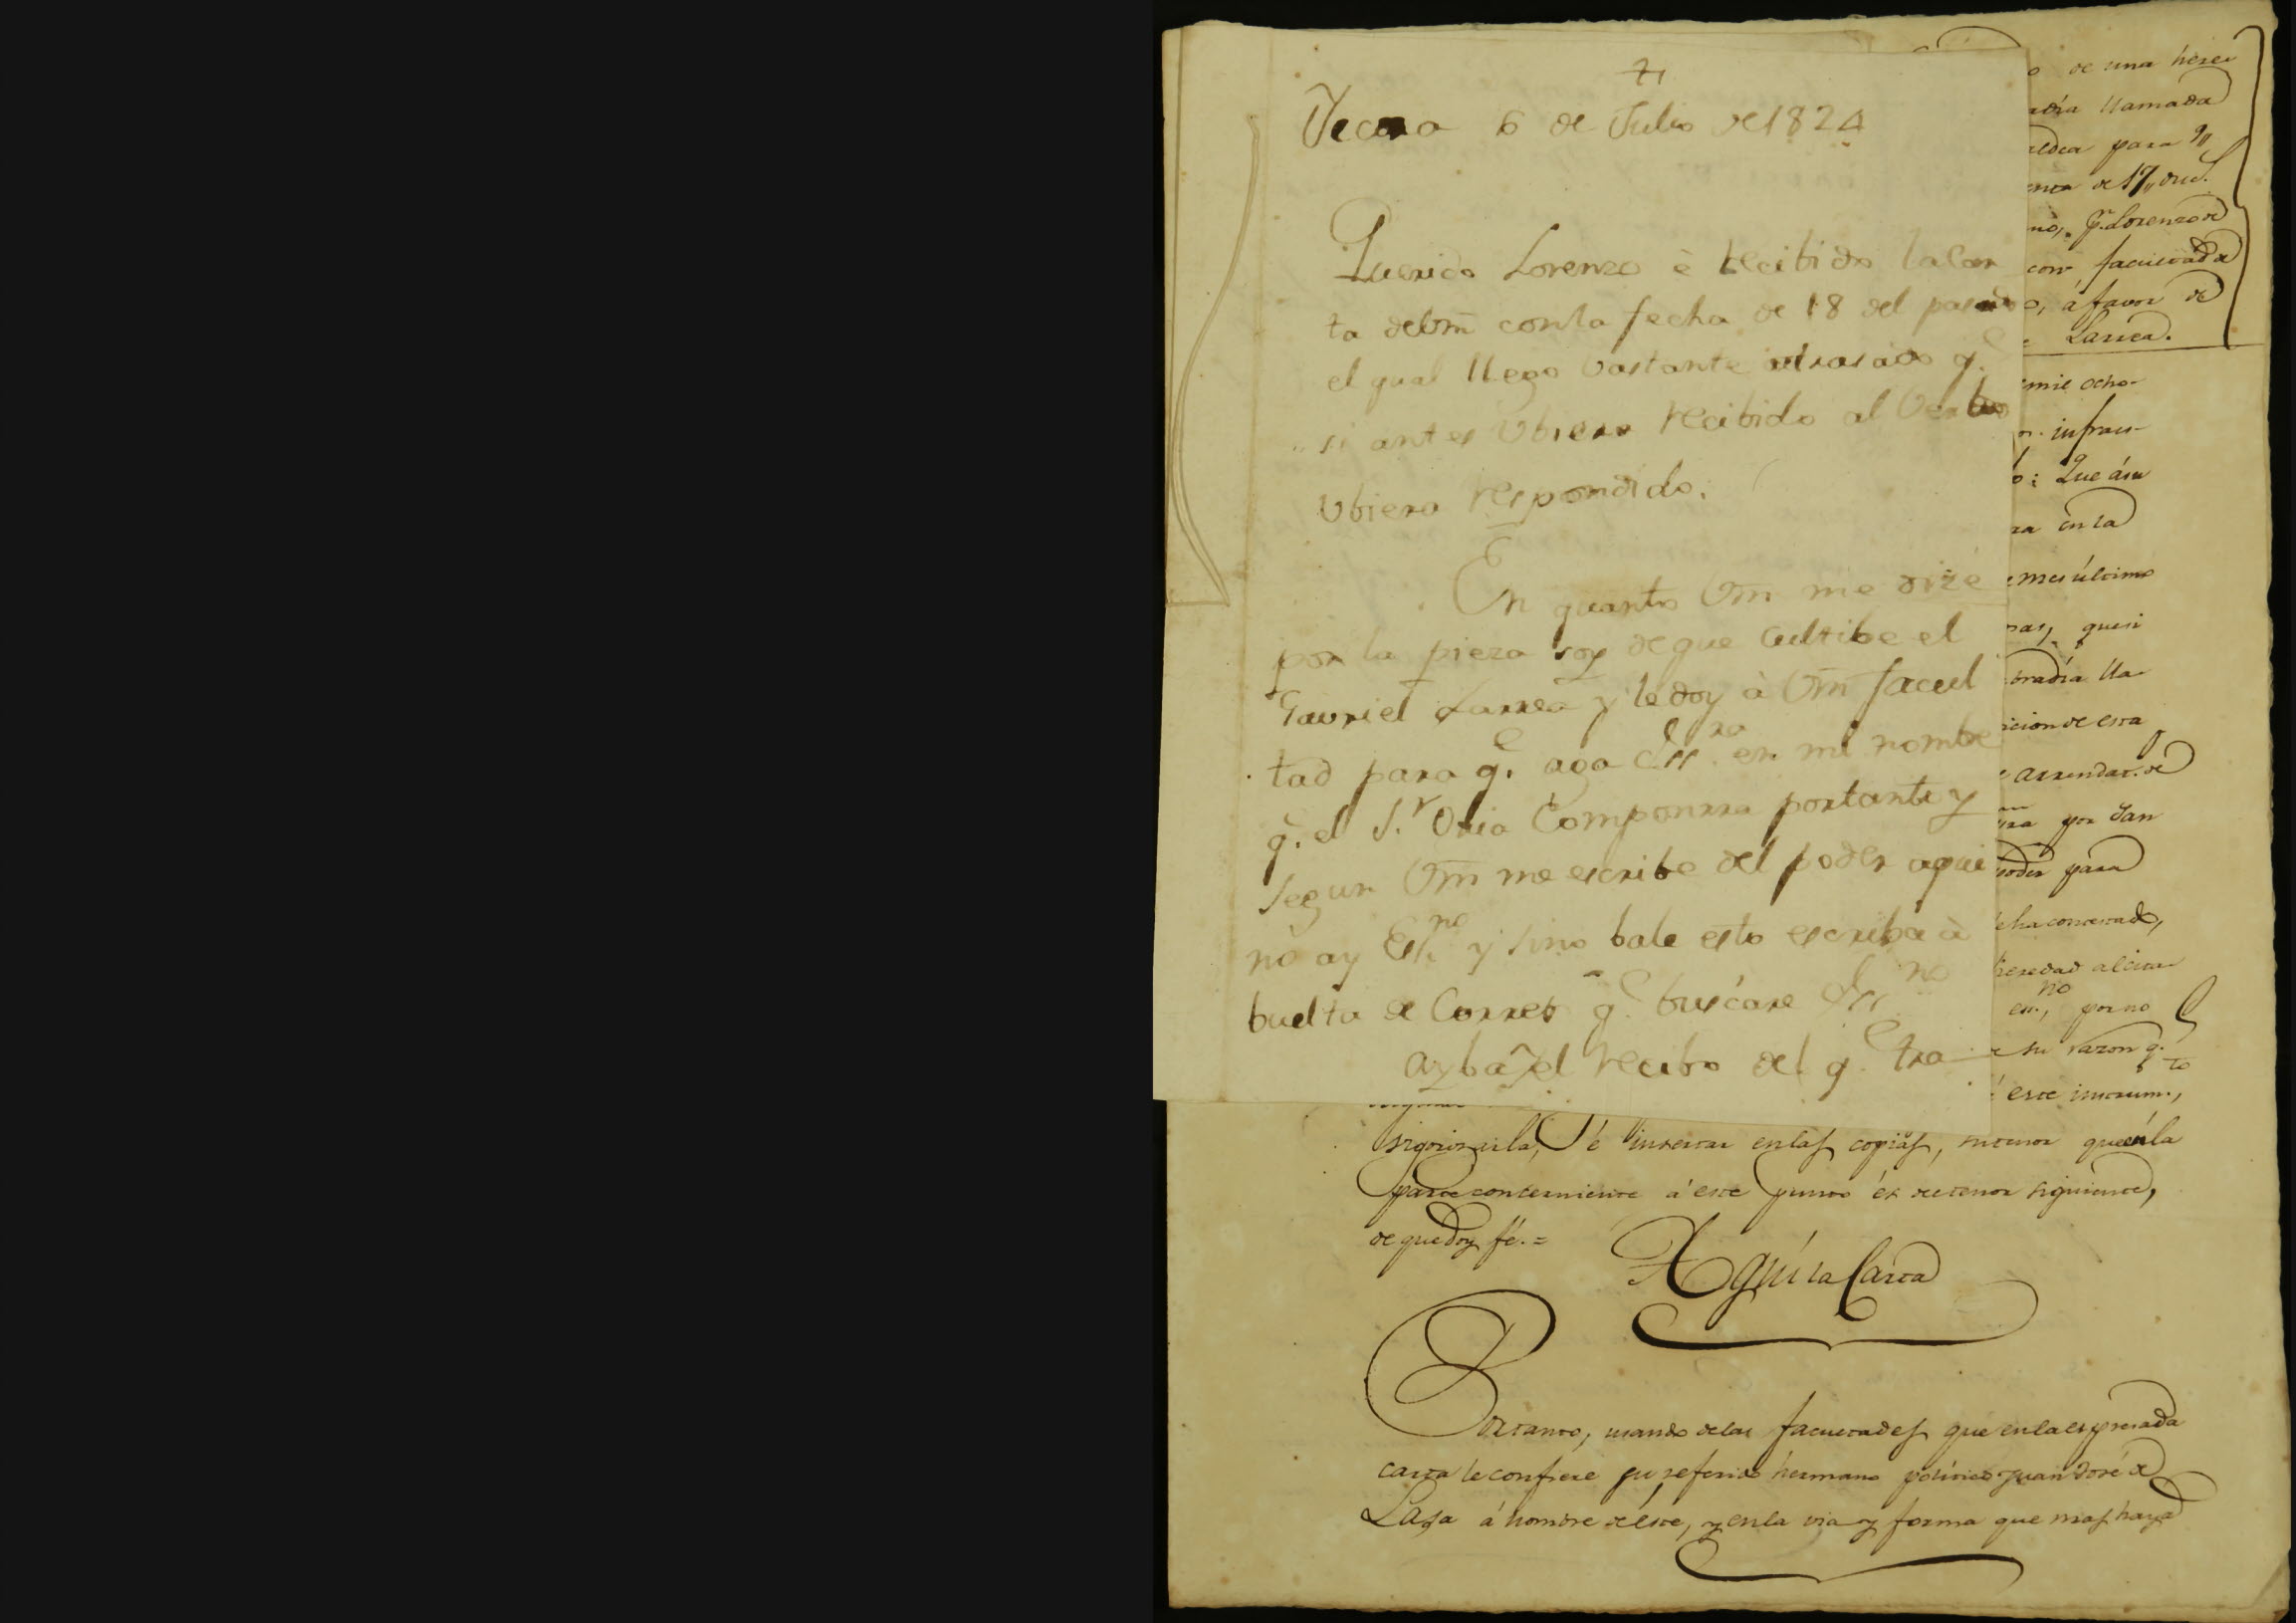 Yecora 6 de Julio de 1824
Querido Lorenzo è recibido la Car
ta de Vm̃ con la fecha de 18 del pasado
el qual llego vastante atrasado q.e
si antes Ubiera recibido al Verlas
Ubiera respondido.
En quanto Vm̃ me dize
por la pieza soy de que Cultibe el
Gavriel Larrea y le doy à Vm̃ facul
tad para q.e aga Essra en mi nombre
q.e el S.r Oria Componrra portante y
segun Vm̃ me escribe del poder aqui
no ay Es.no y sino bale esto escriba à
buelta de Correo q.e buscare Ess.no
ay ba el recibo del q.e tra
o de una here
adia llamada
aldea para q
enta de 17,, duc.s
no, p.r Lorenzo de
con facultad de
o, á favor de
Larrea.
mil ocho-
infras-
o: Que ásu
ra en la
mes último
nas, que si
bradía lla-
icion de esta
arrendar. de
ra por San
poder para
le ha contestado,
heredad al citar
ess.no, por no
e su razon q.e
é este instrum.to,
signarla, é insertar en las copias, su tenor que en la
parte concerniente á este punto és del tenor siguiente,
de que doy fé.=
Aquí la Carta
Portanto, usando de las facultades que en la espresada
carta le confiere su referido hermano político Juan José de
Lasa á nombre de éste, y en la via y forma que mas haya